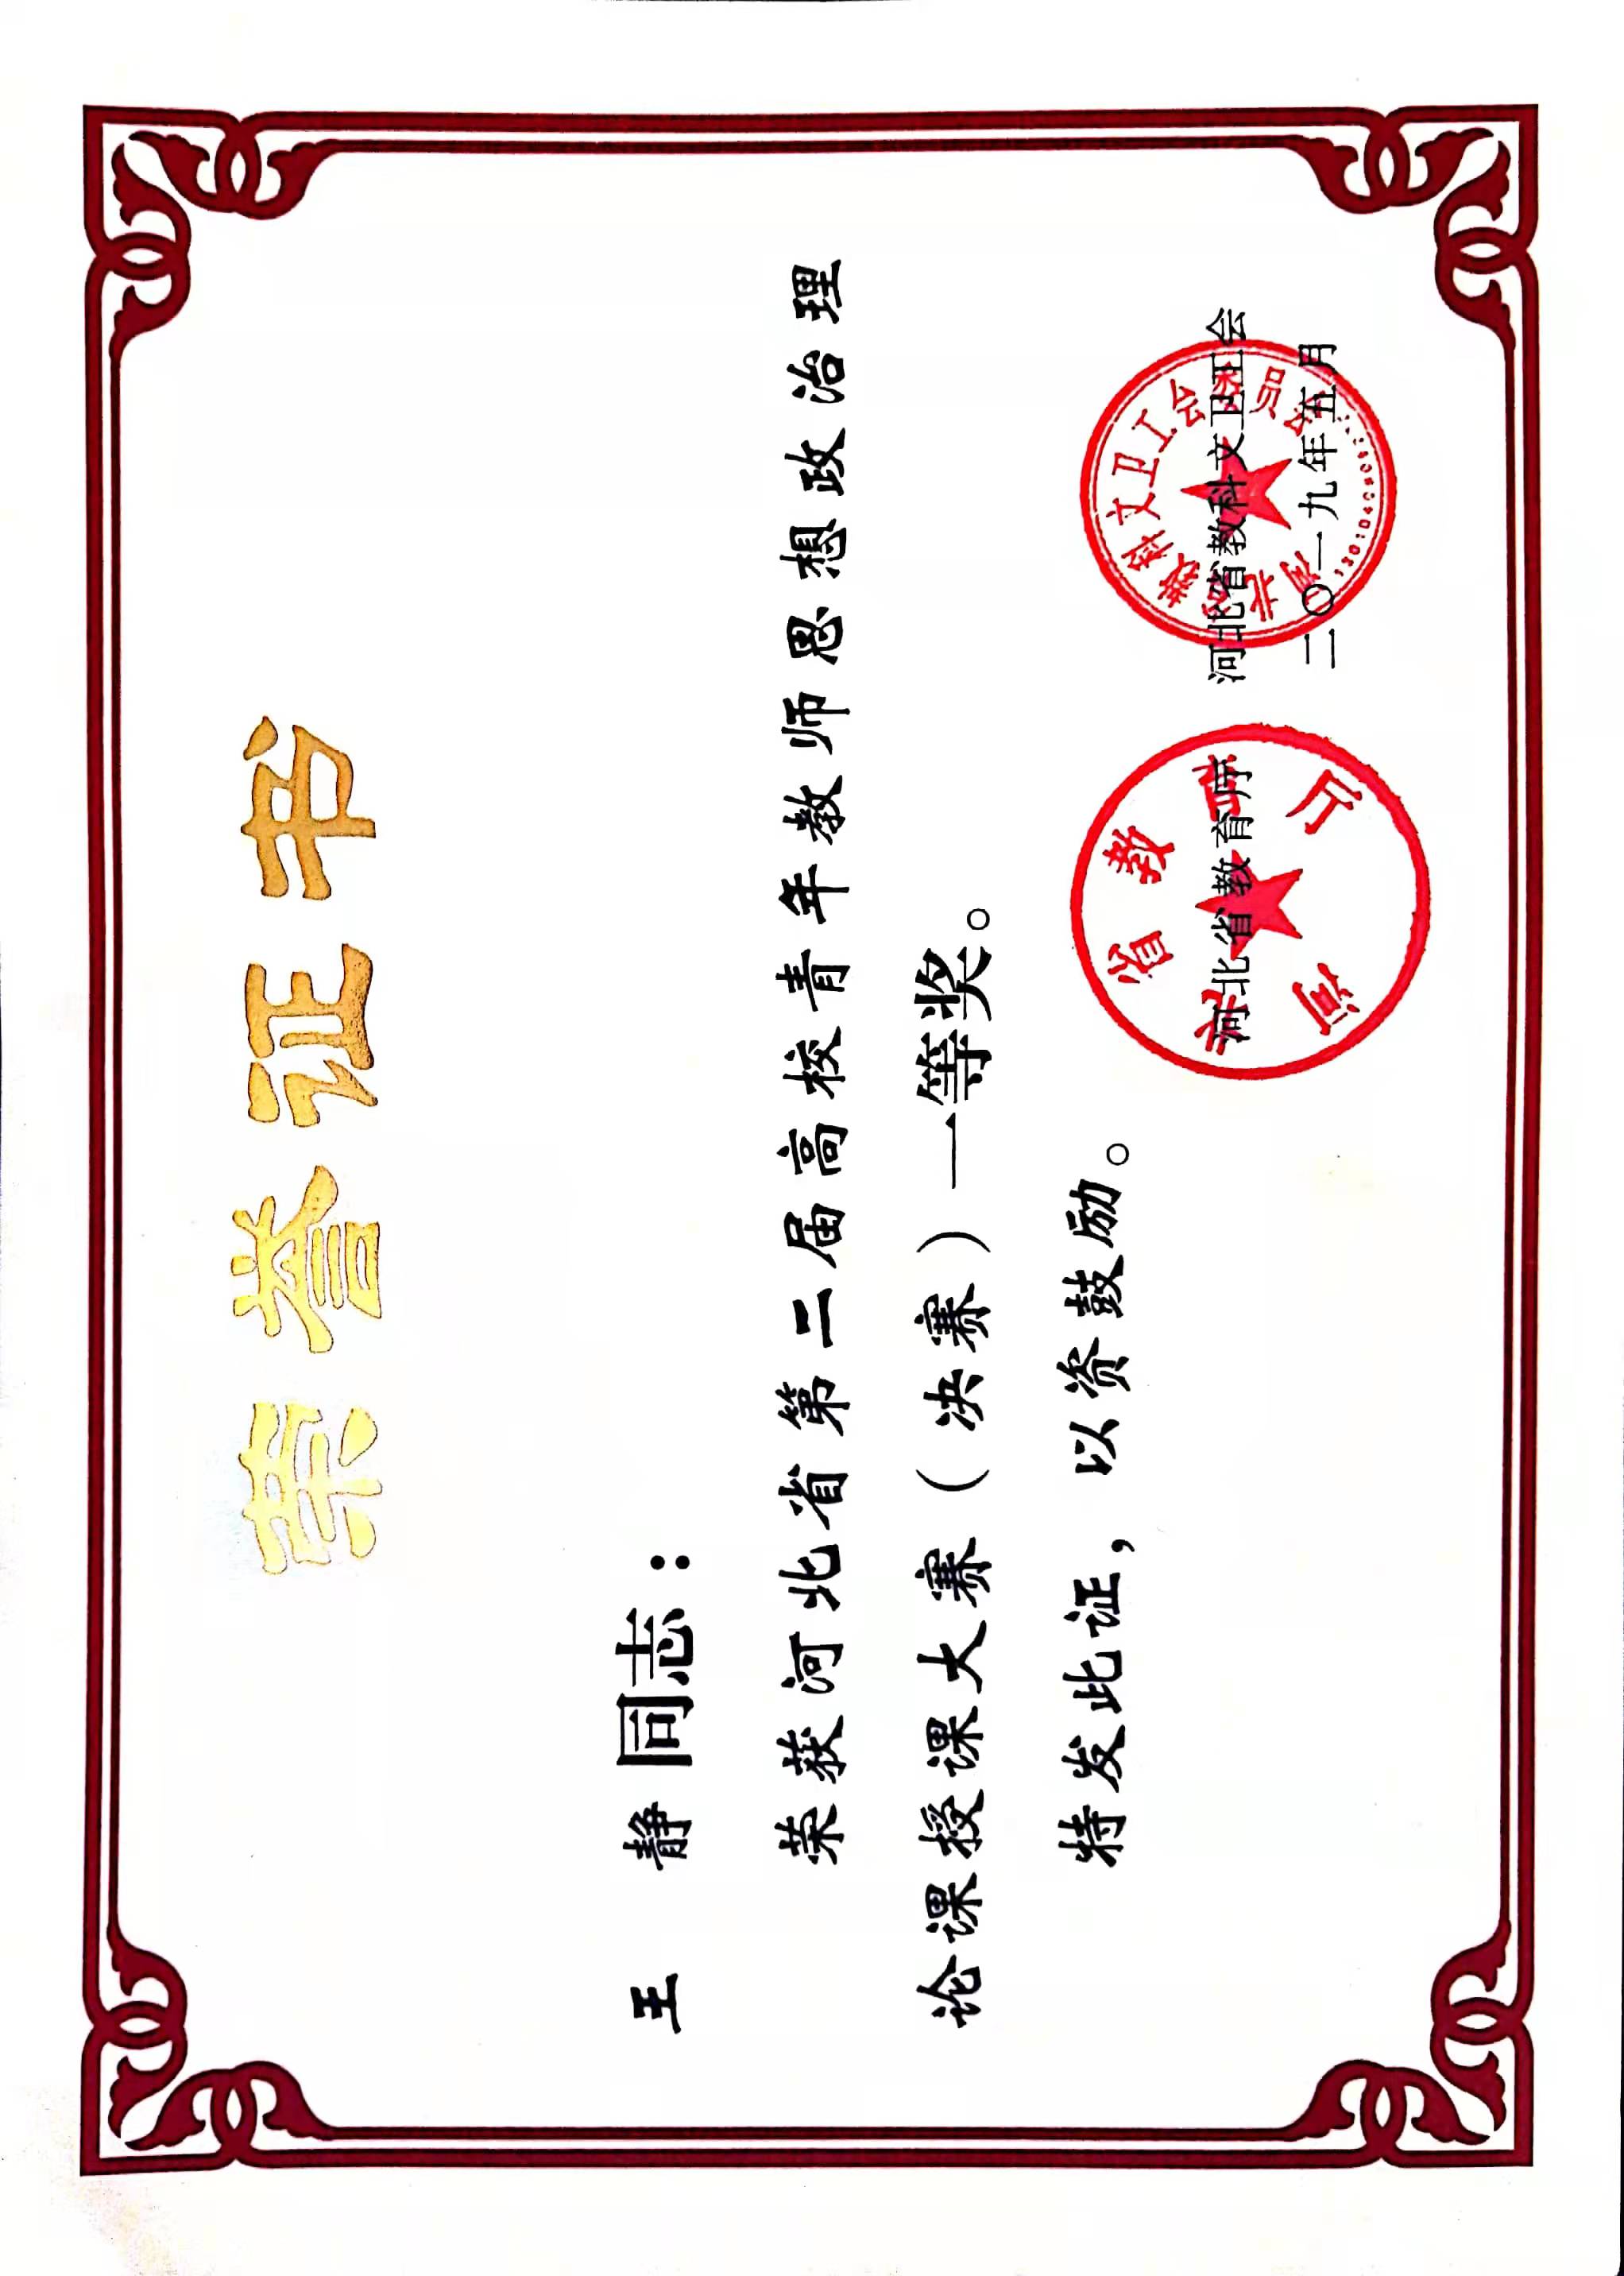 荣誉证书
王 静同志：
荣获河北省第二届高校青年教师思想政治理
论课授课大赛（决赛）一等奖。
特发此证，以资鼓励。
河北省教育厅 河北省教科文卫工会
二〇一九年五月
河北省教育厅
河北省教科文卫工会委员会